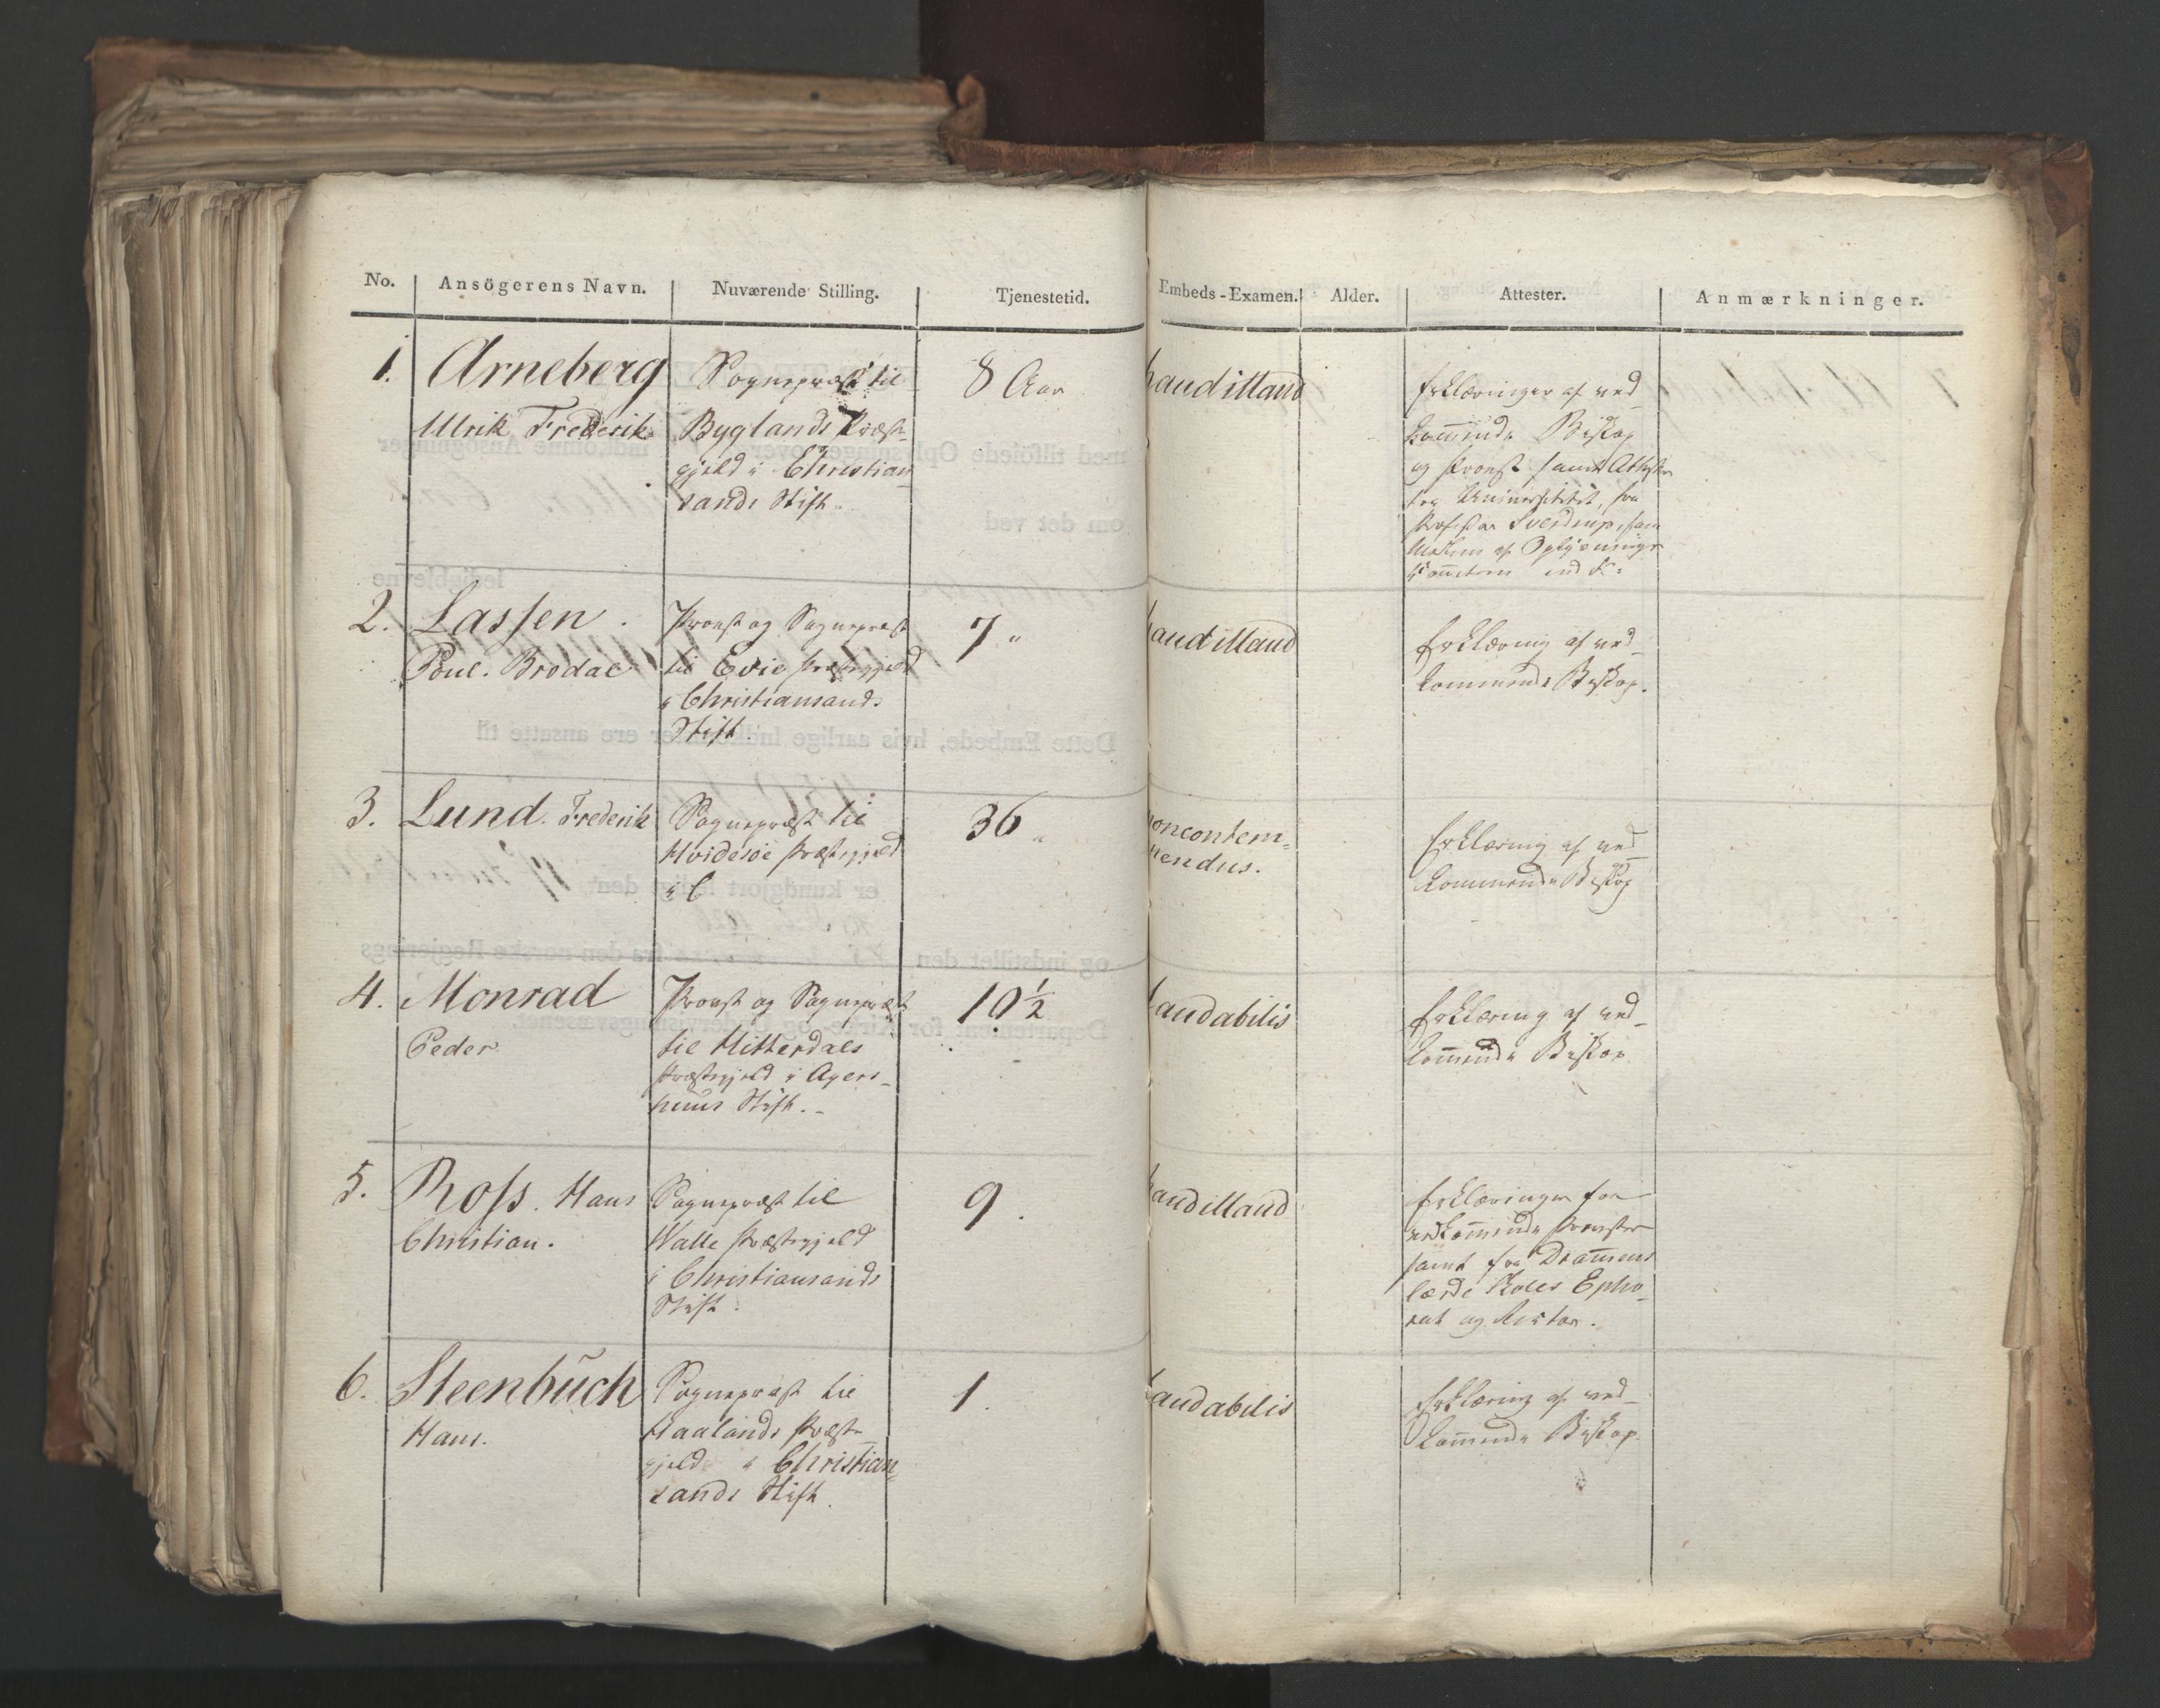 No. Ansögerens Navn. Nuværende Stilling. Tjenestetid. Embeds-Examen. Alder. Attester. Anmærkninger.
1. Arneberg
Ulrik Frederik
Sognepræst til
Byglands Præste-
gjeld i Christian-
sands Stift.
8 Aar
haud illaud
Erklæringer af ved-
kommende Biskop
og Provst samt Attester
fra Universitetet, fra
Professor Sverdrup, som
Medlem af Oplysnings-
2. Lassen.
Poul. Brodal
Provst og Sognepræst
til Evie Præstegjeld
i Christiansands
Stift.
7 "
haud illaud
Erklæring af ved-
kommende Biskop.
3. Lund. Frederik
Sognepræst til
Hvidesøe Præstegjeld
i C
36 "
noncontem=
nendus.
Erklæring af ved-
kommende Biskop
4. Monrad
Peder
Provst og Sognepræst
til Hitterdals
Præstegjeld i Agers-
huus Stift.-
10 1/2
laudabilis
Erklæring af ved-
kommende Biskop
5. Ross. Hans
Christian.
Sognepræst til
Valle Præstegjeld
i Christiansands
Stift.
9.
haud illaud
Erklæringer fra
vedkommende Provster
samt fra Drammens
lærde Skoles Epho-
rat og Rector.
6. Steenbuch
Hans.
Sognepræst til
Aaalands Præste-
gjeld i Christian-
sands Stift.
1.
laudabilis
Erklæring af ved-
kommende Biskop.